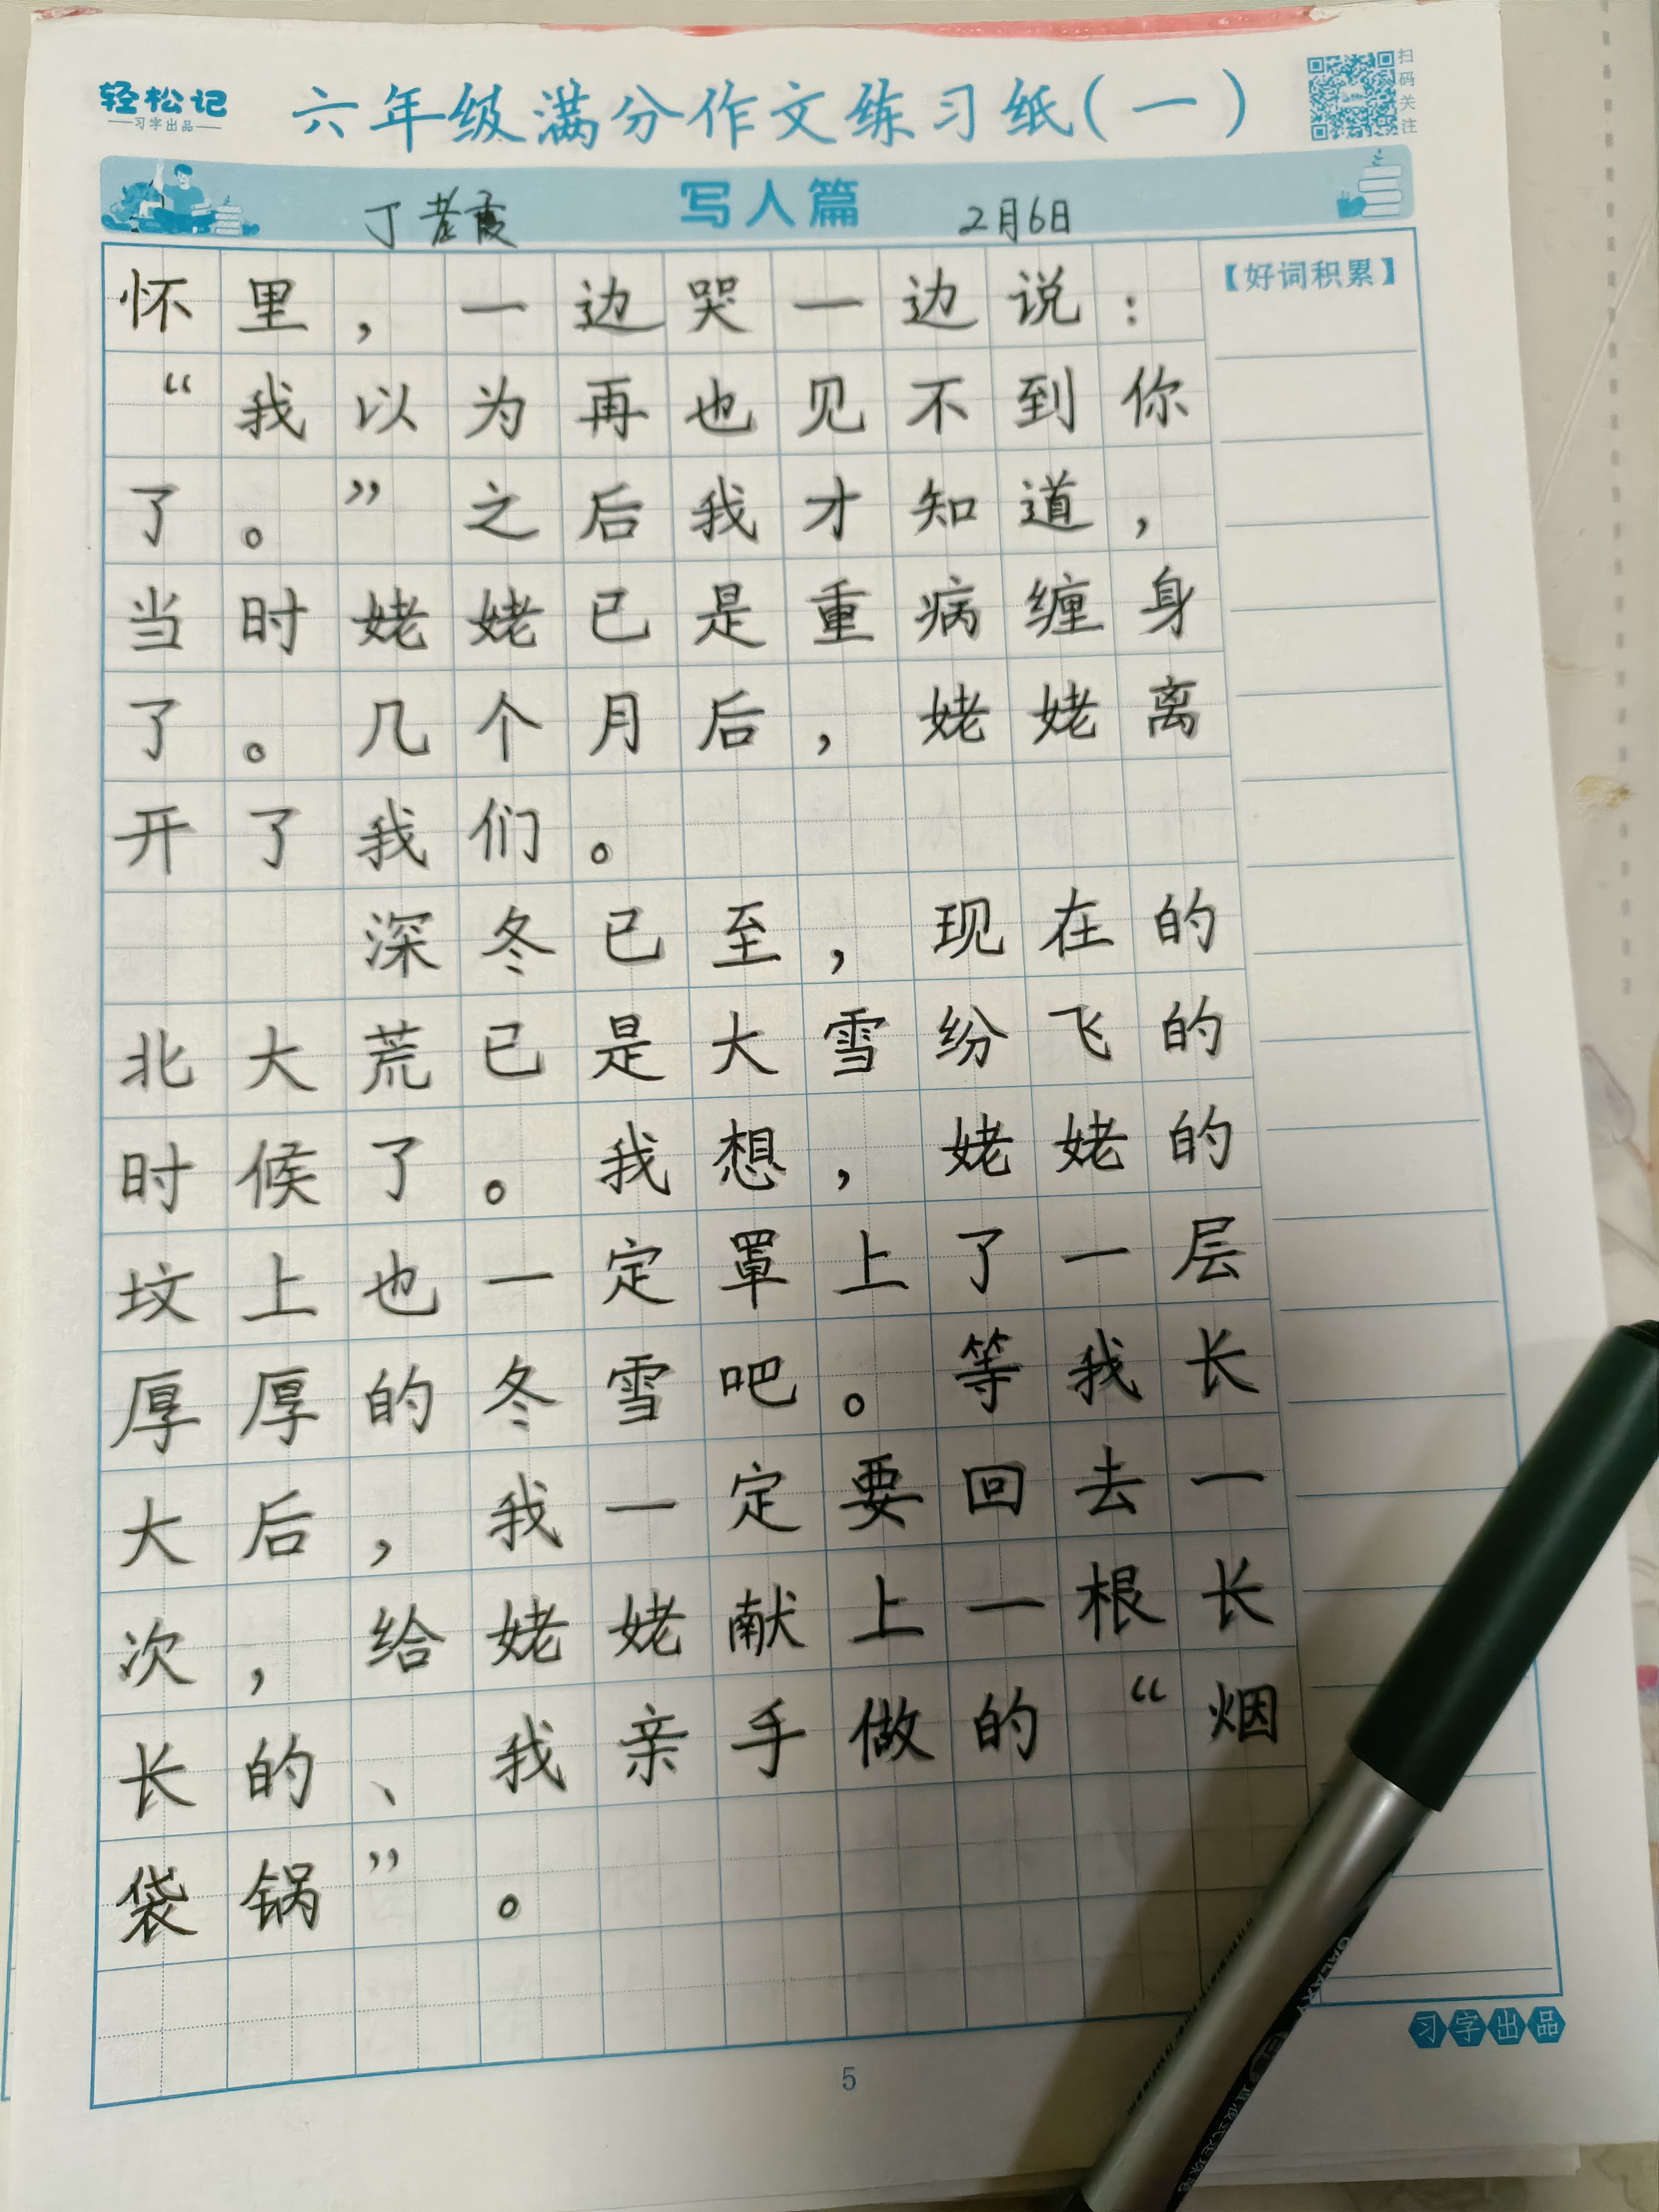 轻松记
习字出品
六年级满分作文练习纸(一)
扫码关注
写人篇
2月6日
【好词积累】
怀里，一边哭一边说：
“我以为再也见不到你
了。”之后我才知道，
当时姥姥已是重病缠身
了。几个月后，姥姥离
开了我们。
深冬已至，现在的
北大荒已是大雪纷飞的
时候了。我想，姥姥的
坟上也一定罩上了一层
厚厚的冬雪吧。等我长
大后，我一定要回去一
次，给姥姥献上一根长
长的、我亲手做的“烟
袋锅”。
习字出品
5